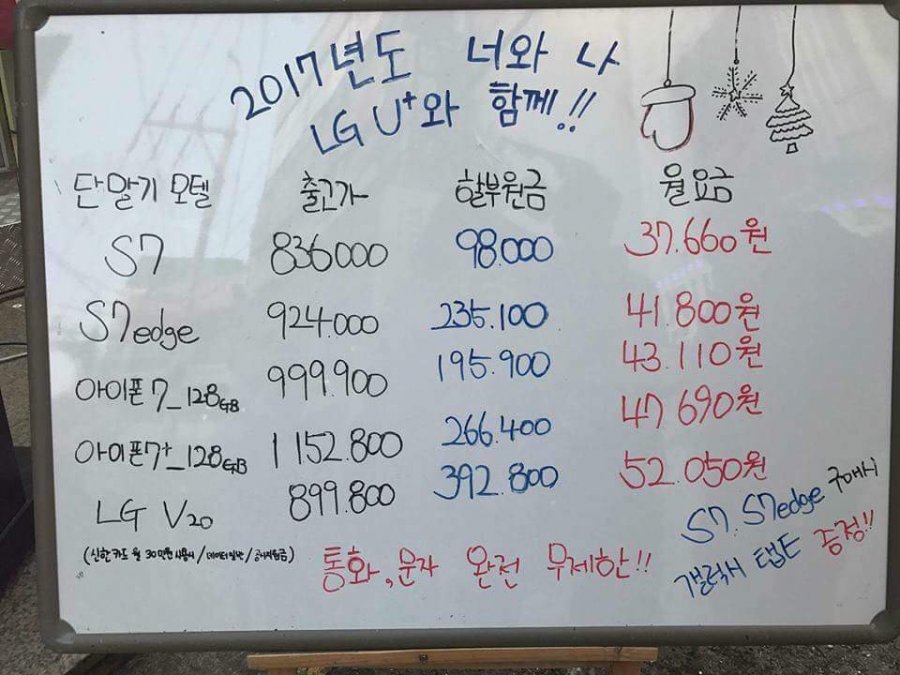 2017년도 너와 나
LG U⁺와 함께!!
단말기 모델 출고가 할부원금 월요금
S7 836000 98.000 37.660원
S7edge 924.000 235.100 41.800원
아이폰7_128GB 999.900 195.900 43.110원
아이폰7⁺_128GB 1152.800 266.400 47690원
LG V20 899.800 392.800 52.050원
(신한카드 월 30만원 사용시/데이터일반/공시지원금)
통화,문자 완전 무제한!!
S7. S7edge 구매시
갤럭시 탭E 증정!!